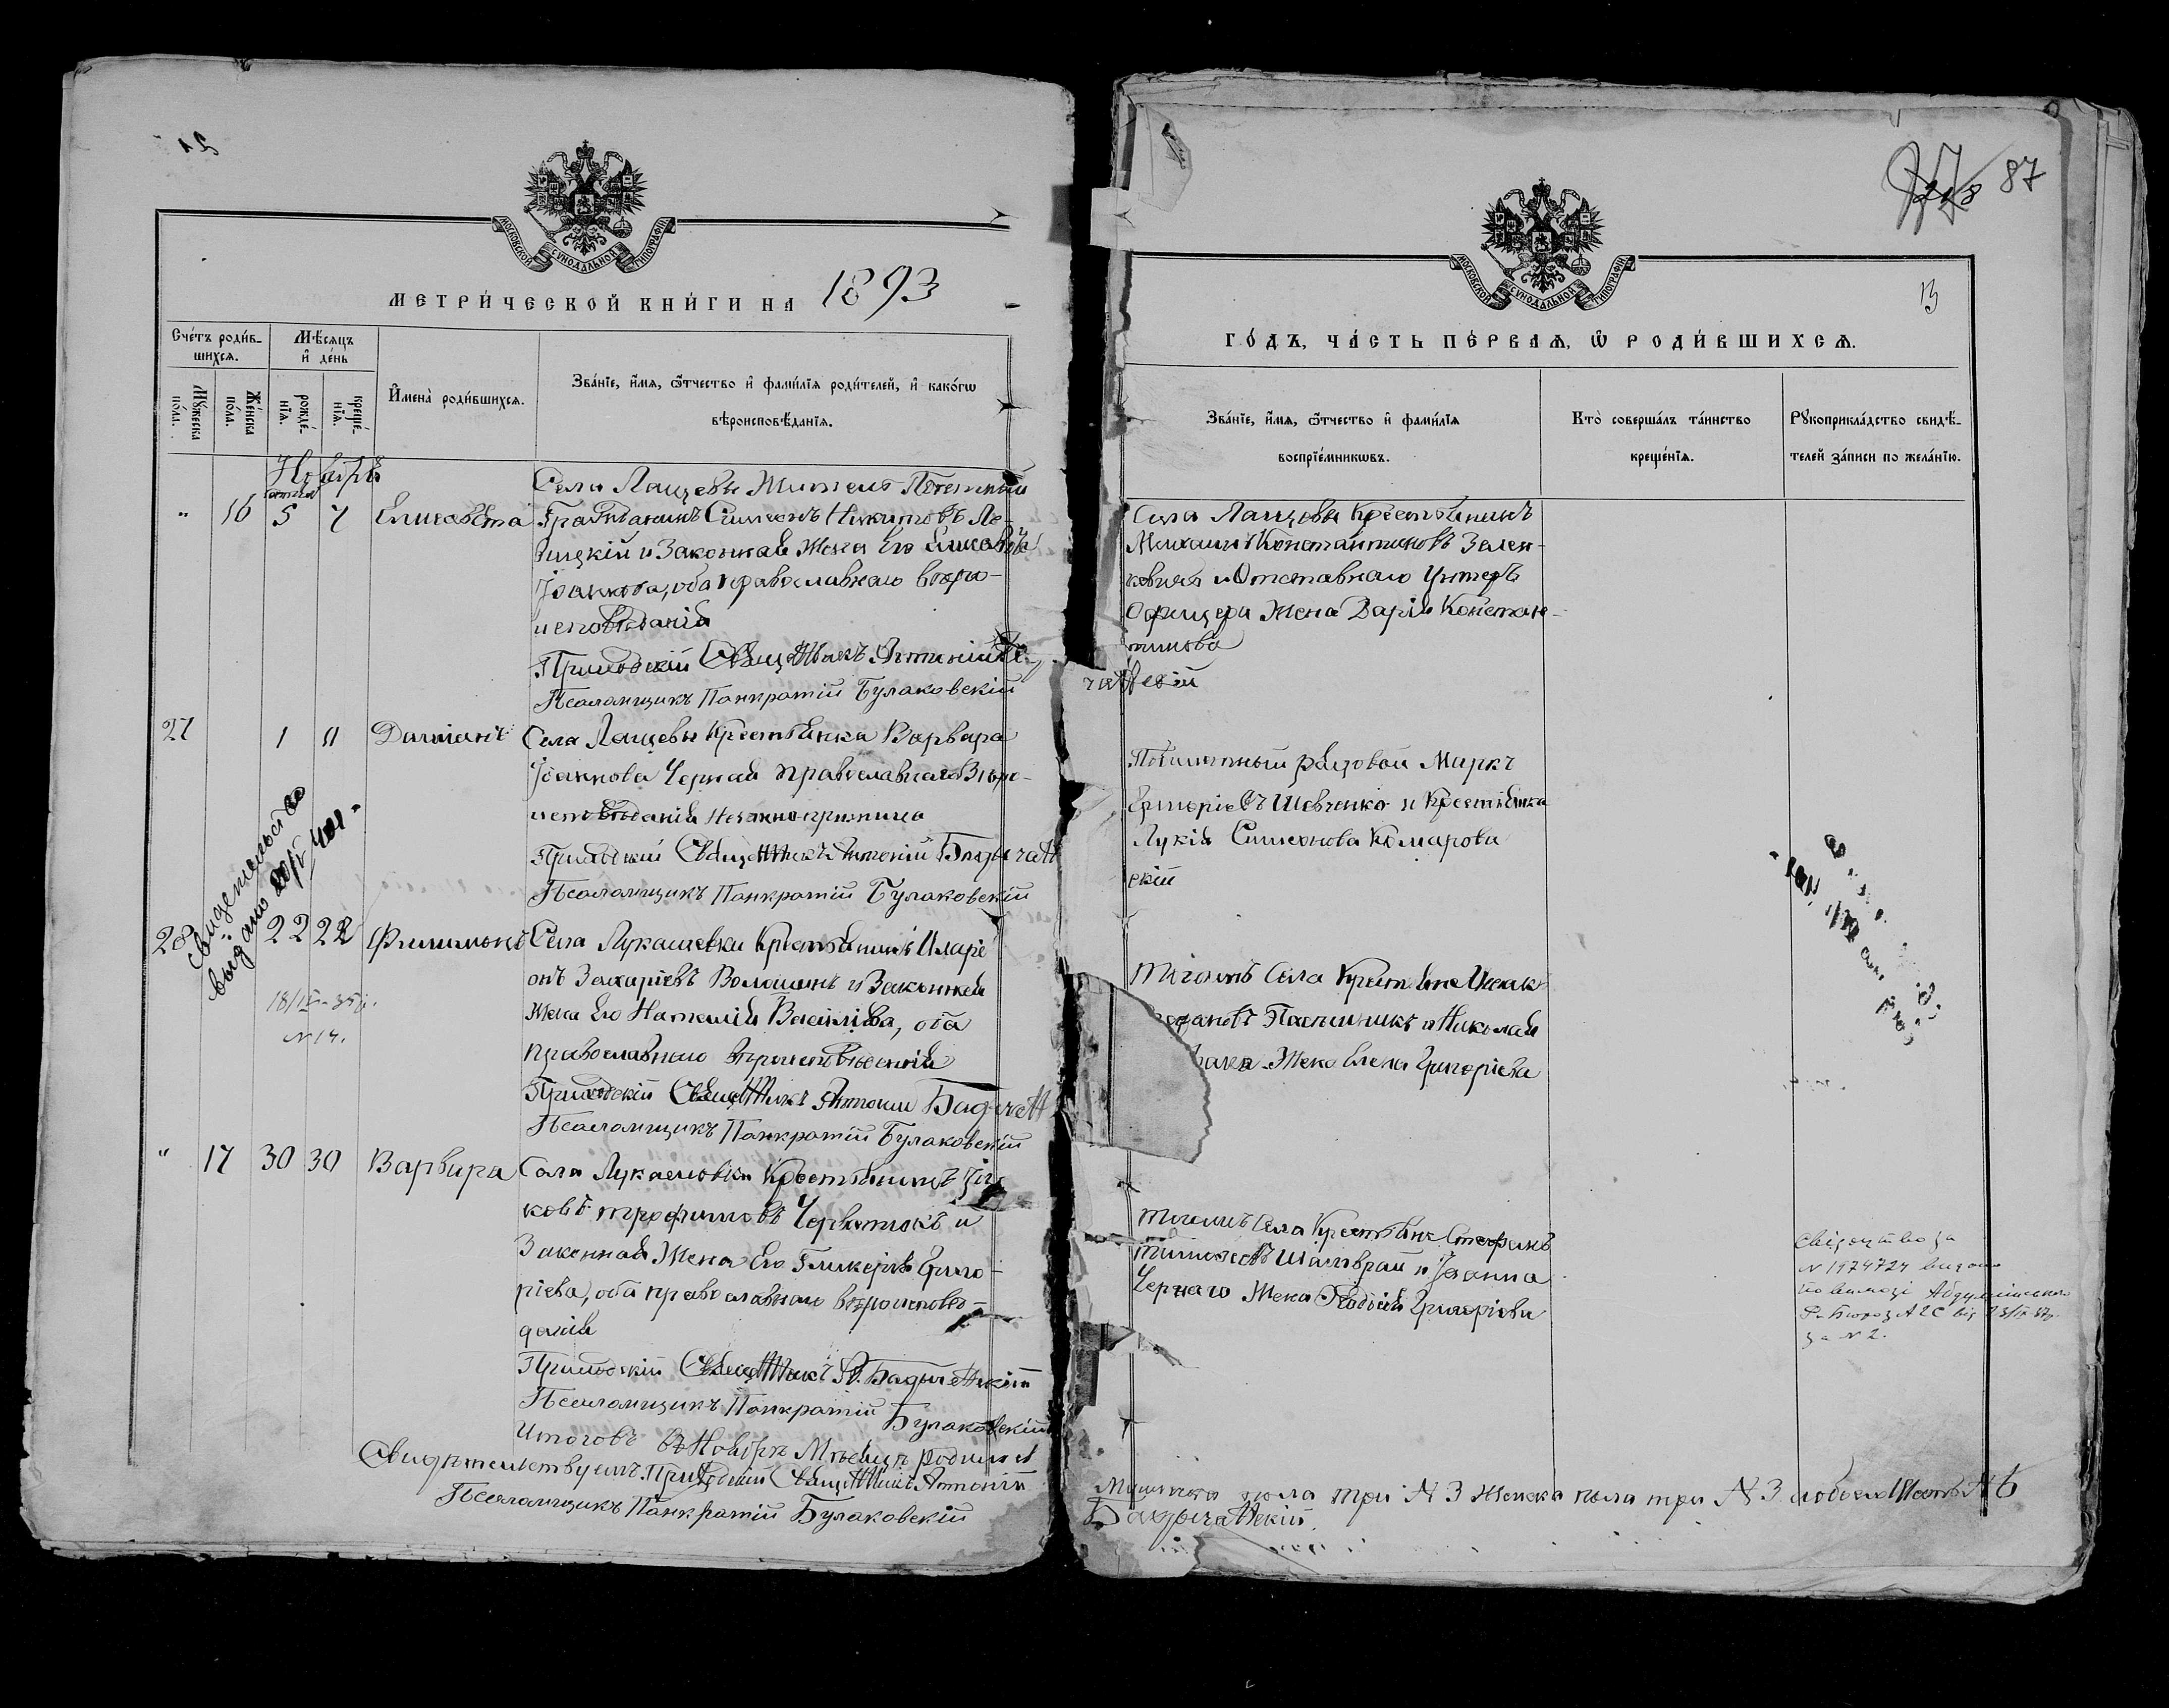 МОСКОВСКОЙ СѴНОДАЛЬНОЙ ТИПОГРАФІИ
МЕТРИ́ЧЕСКОЙ КНИ́ГИ НА 1893
Сче́тъ роди́в-
шихся.
Мѣ́сяцъ
и҆ де́нь
Мꙋ́жеска
по́ла.
Же́нска
по́ла.
рожде́-
нїѧ.
креще́-
нїѧ.
И҆мена̀ роди́вшихсѧ.
Зва́нїе, и҆́мѧ, ѻ҆́тчество и҆ фами́лїѧ роди́телей, и҆ како́гѡ
вѣроисповѣ́данїѧ.
Ноябрь
" 16 5 7 Елисавета
Села Лащевы Житель Почетный
Гражданинъ Симеонъ Никитовъ Ле-
вицкій и Законная Жена Его Елисавета
Іоаннова, оба православнаго вѣро-
исповѣданія
Приходскій Священникъ Антоній
Псаломщикъ Панкратій Булаковскій
27 1 11 Даміанъ
Села Лащевы Крестьянка Варвара
Іоаннова Черная православнаго Вѣро-
исповѣданія незаконно прижила
Приходскій Священникъ Антоній Бадычан
Псаломщикъ Панкратій Булаковскій
Свидетельство
выдано
28 22 22 Филимонъ
18/IX-35 г.
N 14.
Села Лукашевки Крестьянинъ Иларі
онъ Захаріевъ Волошинъ и Законная
Жена Его Наталія Васильева, оба
православнаго вѣроисповѣданія
Приходскій Священникъ Антоній Бадычан
Псаломщикъ Панкратій Булаковскій
" 17 30 30 Варвара
Села Лукашовки Крестьянинъ Іа
ковъ Трофимовъ Черватюкъ и
Законная Жена Его Гликерія Григо-
ріева, оба православнаго вѣроисповѣ-
данія
Приходскій Священникъ А. Бадычанскій
Псаломщикъ Панкратій Булаковскій
Итогов въ Ноябрѣ Мѣсяцѣ родился
Свидѣтельствуемъ: Приходскій Священникъ Антоній
Псаломщикъ Панкратій Булаковскій
87
13
МОСКОВСКОЙ СѴНОДАЛЬНОЙ ТИПОГРАФІИ
ГО́ДЪ, ЧА́СТЬ ПЕ́РВАѦ, Ѽ РОДИ́ВШИХСѦ.
Зва́нїе, и҆́мѧ, ѻ҆́тчество и҆ фами́лїѧ
воспрїе́мникѡвъ.
Кто̀ соверша́лъ та́инство
креще́нїѧ.
Рꙋкоприкла́дство свидѣ́-
телей за́писи по жела́нїю.
Села Лащовы Крестьянинъ
Михаилъ Константиновъ Зелен-
кевичъ и Отставнаго Унтеръ
Офицера Жена Дарія Констан-
тинова
Марко
Григоріевъ Шевченко и Крестьянка
Лукія Симеонова Комарова
скій
Тогожъ Села Крестьяне Исаак
и Николая
Жена Елена Григоріева
Тогожъ Села Крестьяне Стефанъ
и Іоанна
Чернаго Жена Ѳеодосія Григоріева
Свідоцтво за
N 1974724 видано
по вимозі
за N 2.
Мужеска пола три N 3 Женска пола три N 3 обоего Шесть N 6
Бадычанскій